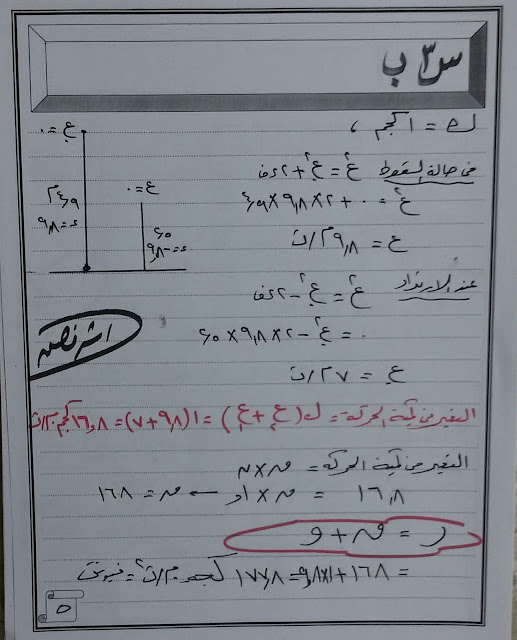 س٣ ب
ك = ١ كجم ،
فى حالة السقوط ع٢ = ع.٢ + ٢ء ف
ع.=٠
ع٢ = ٠ + ٢×٩,٨×٤,٩
ع = ٩,٨ م/ث
٤,٩ م
ء=٩,٨
ع=٠
ء=-٩,٨
عند الارتداد ع٢ = ع.٢ - ٢ء ف
٠ = ع.٢ - ٢×٩,٨×٢,٥
ع. = ٧ م/ث
اشرف نصر
التغير من كمية الحركة = ك(ع + ع) = ١(٩,٨+٧) = ١٦,٨ كجم.م/ث
التغير من كمية الحركة = م×ن
١٦,٨ = م×٠,١ ← م = ١٦٨
ر = م + و
= ١٦٨+١×٩,٨ = ١٧٧,٨ كجم.م/ث٢ = نيوتن
٥